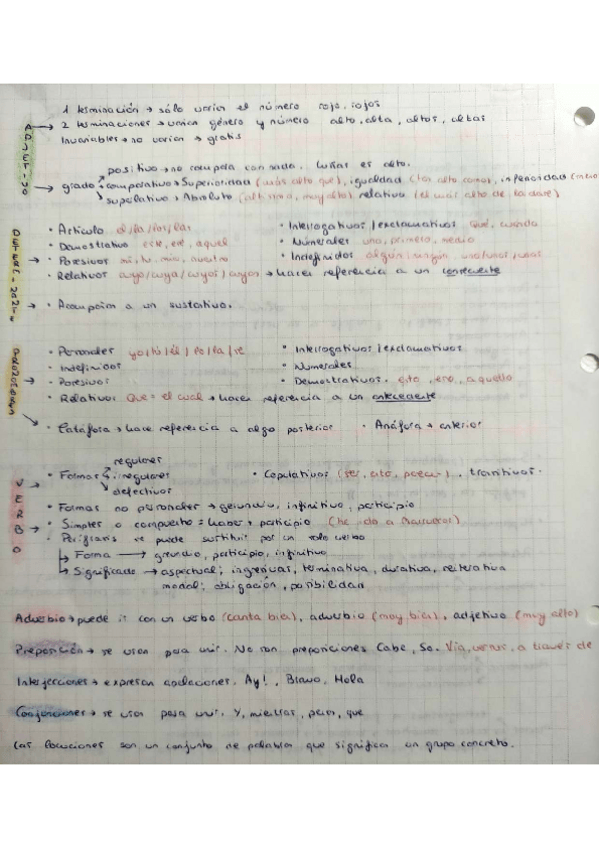 1 terminación → sólo varían el número rojo, rojos
ADJETIVO → 2 terminaciones → varían género y número alto, alta, altos, altas
Invariables → no varían → gratis
positivo → no compara con nada. es alto.
grado → comparativo → Superioridad (más alto que), igualdad (tan alto como), inferioridad
superlativo → Absoluto (altísimo, muy alto) relativo (el más alto de la clase)
DETERMINANTE
• Artículo el/la/los/las
• Interrogativos/exclamativos qué, cuándo
• Demostrativo este, ese, aquel
• Numerales uno, primero, medio
• Posesivos mi, tu, mío, nuestro
• Indefinidos algún, ningún, unos
• Relativos cuyo/cuya/cuyos/cuyas → hacer referencia a un
• Acompañan a un sustantivo.
PRONOMBRES
• Personales yo/tú/él/lo/la/se
• Interrogativos/exclamativos
• Indefinidos
• Numerales
• Posesivos
• Demostrativos. esto, eso, aquello
• Relativos Que = el cual → hacer referencia a un antecedente
• Catáfora → hace referencia a algo posterior
• Anáfora → anterior
VERBO
regulares
• Formas irregulares
• Copulativos (ser, estar, parecer), transitivos.
defectivos
• Formas no personales → gerundio, infinitivo, participio
• Simples o compuesto = haber + participio
• Perífrasis se puede sustituir por un solo verbo
→ Forma → gerundio, participio, infinitivo
→ Significado → aspectual; ingresivas, terminativa, durativa, reiterativa
modal; obligación, posibilidad
Adverbio → puede ir con un verbo (canta bien), adverbio (muy bien), adjetivo (muy alto)
Preposición → se usan para unir. No son preposiciones Cabe, So. Vía, versus, a través de
Interjecciones → expresan apelaciones. Ay!, Bravo, Hola
Conjunciones → se usan para unir. Y, mientras, pero, que
Las locuciones son un conjunto de palabras que significa un grupo concreto.